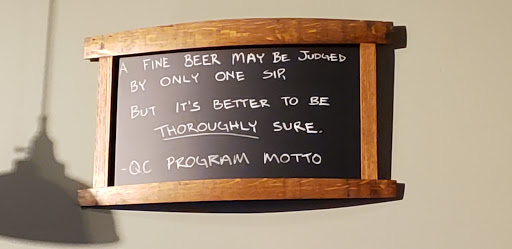 A FINE BEER MAY BE JUDGED
BY ONLY ONE SIP,
BUT IT'S BETTER TO BE
THOROUGHLY SURE.
-QC PROGRAM MOTTO